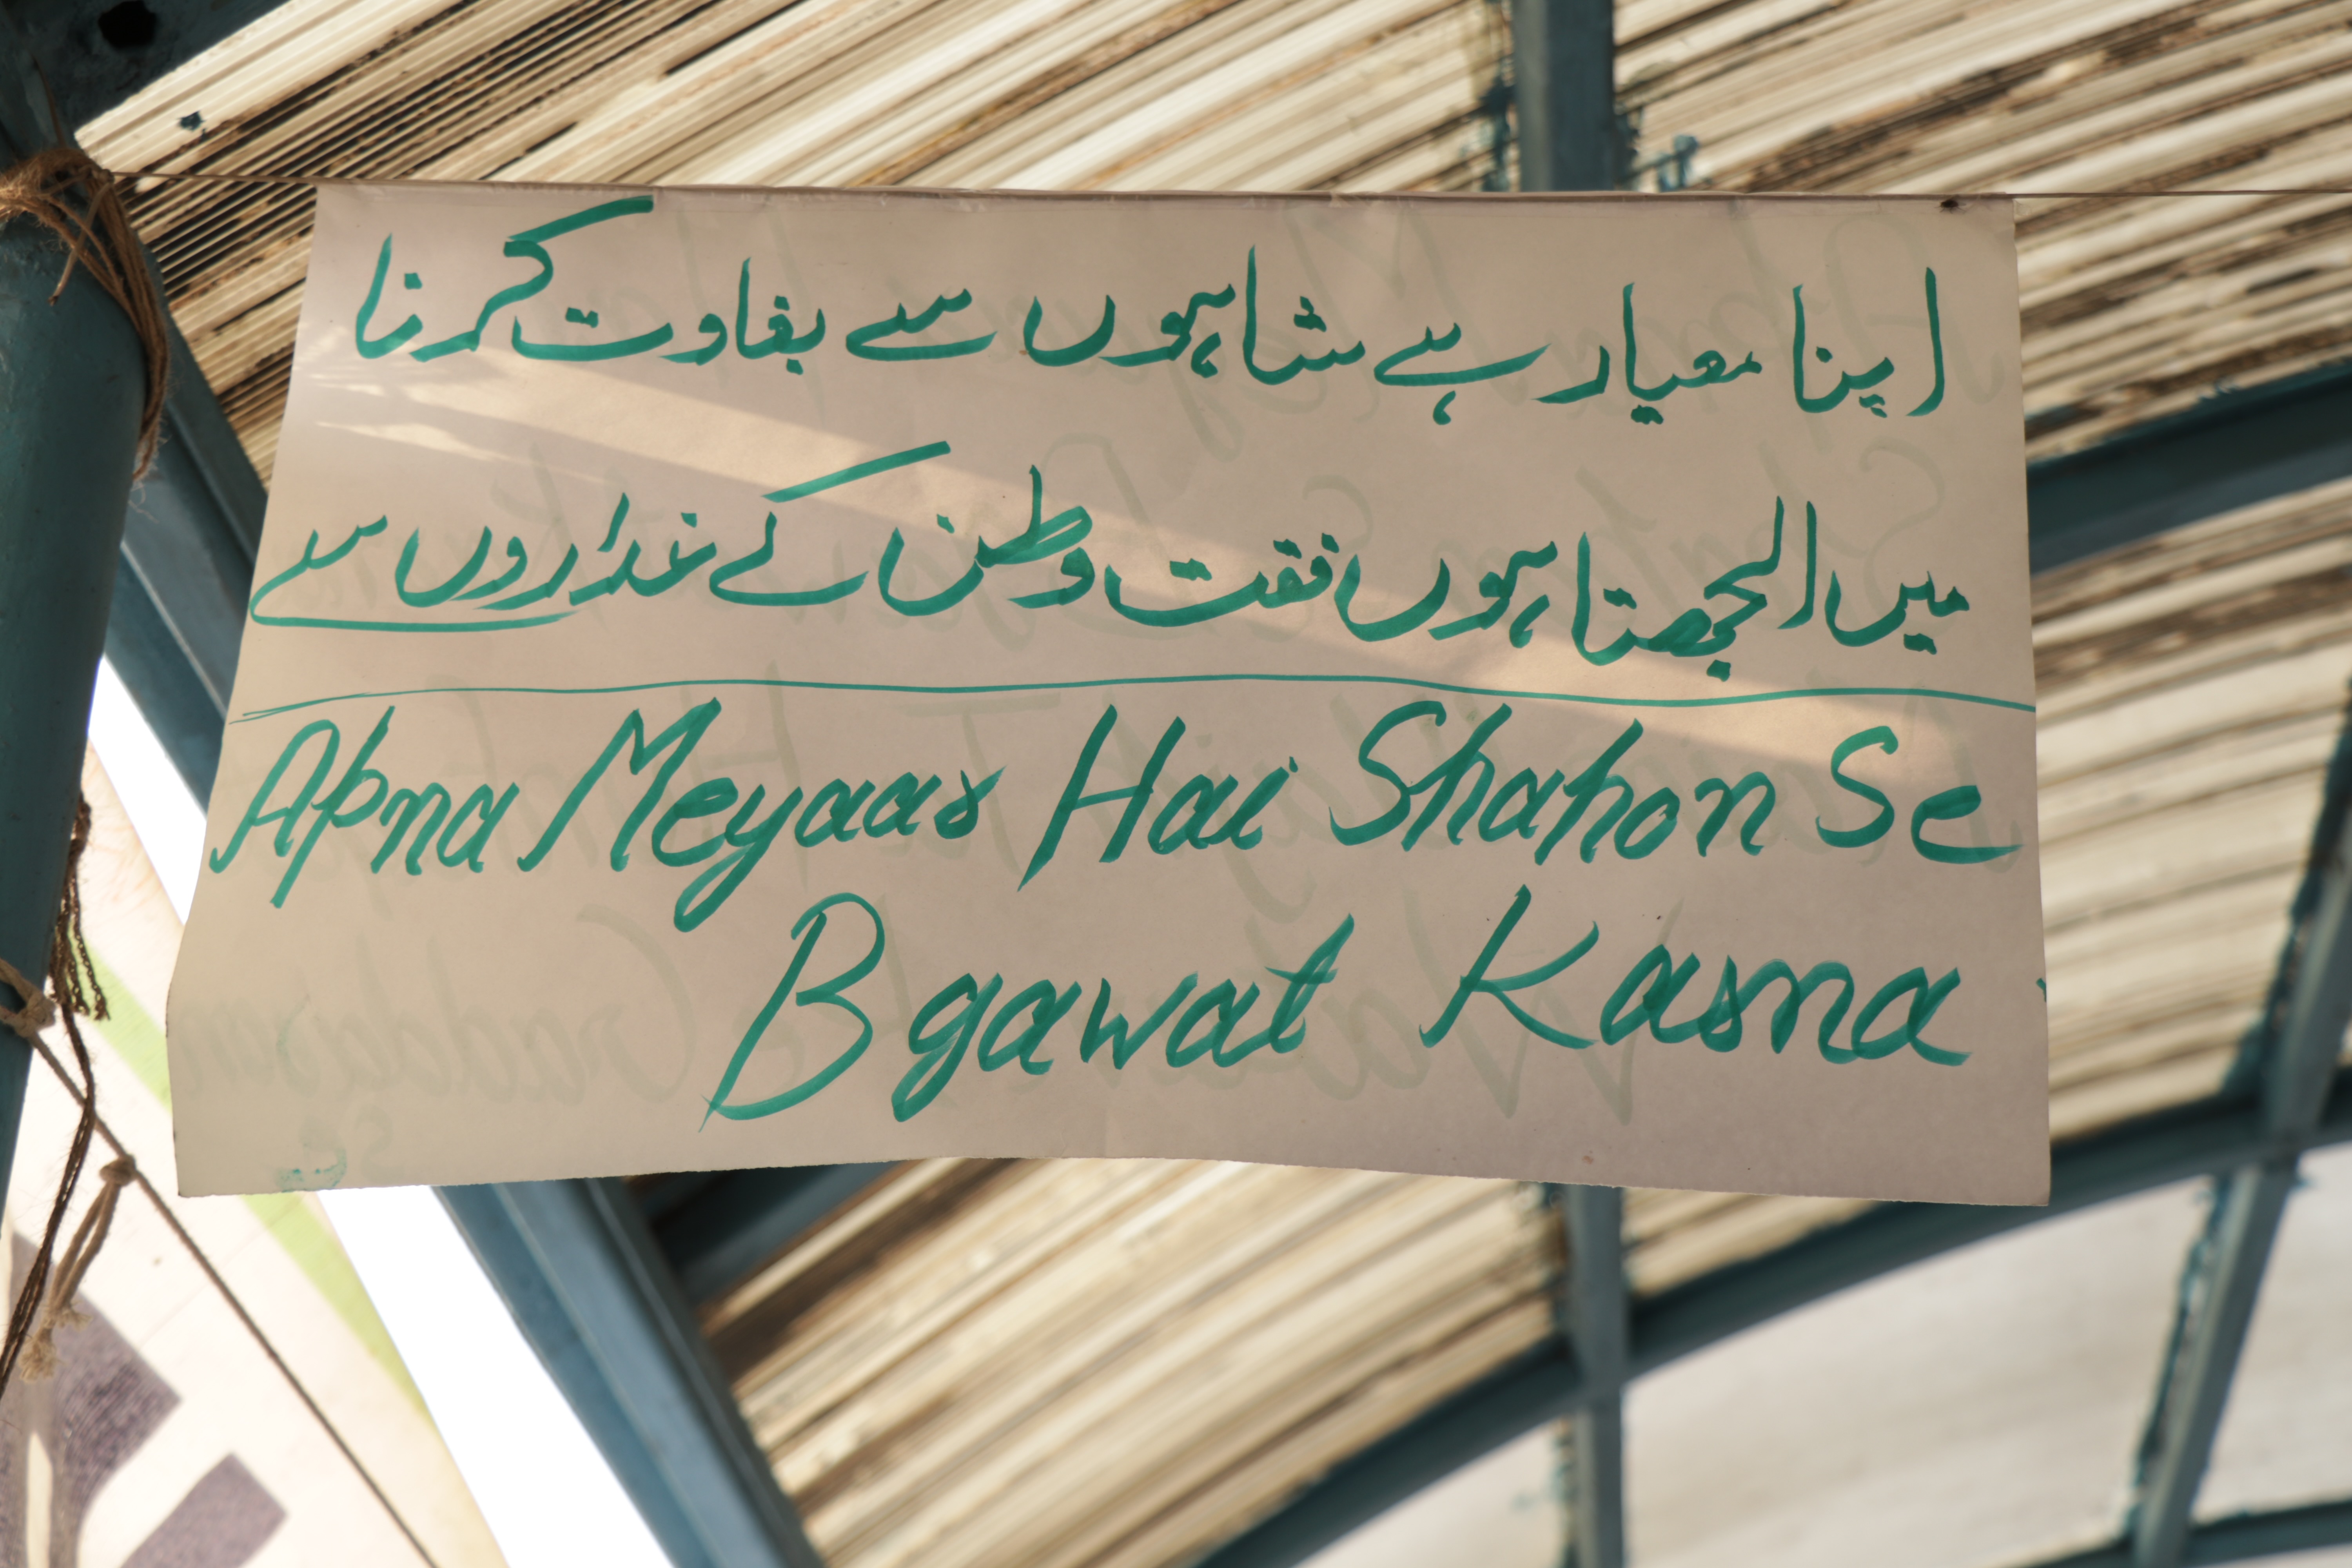 اپنا معیار ہے شاہوں سے بغاوت کرنا
میں الجھتا ہوں فقت وطن کے غداروں سے
Apna Meyaar Hai Shahon Se
Bgawat Karna